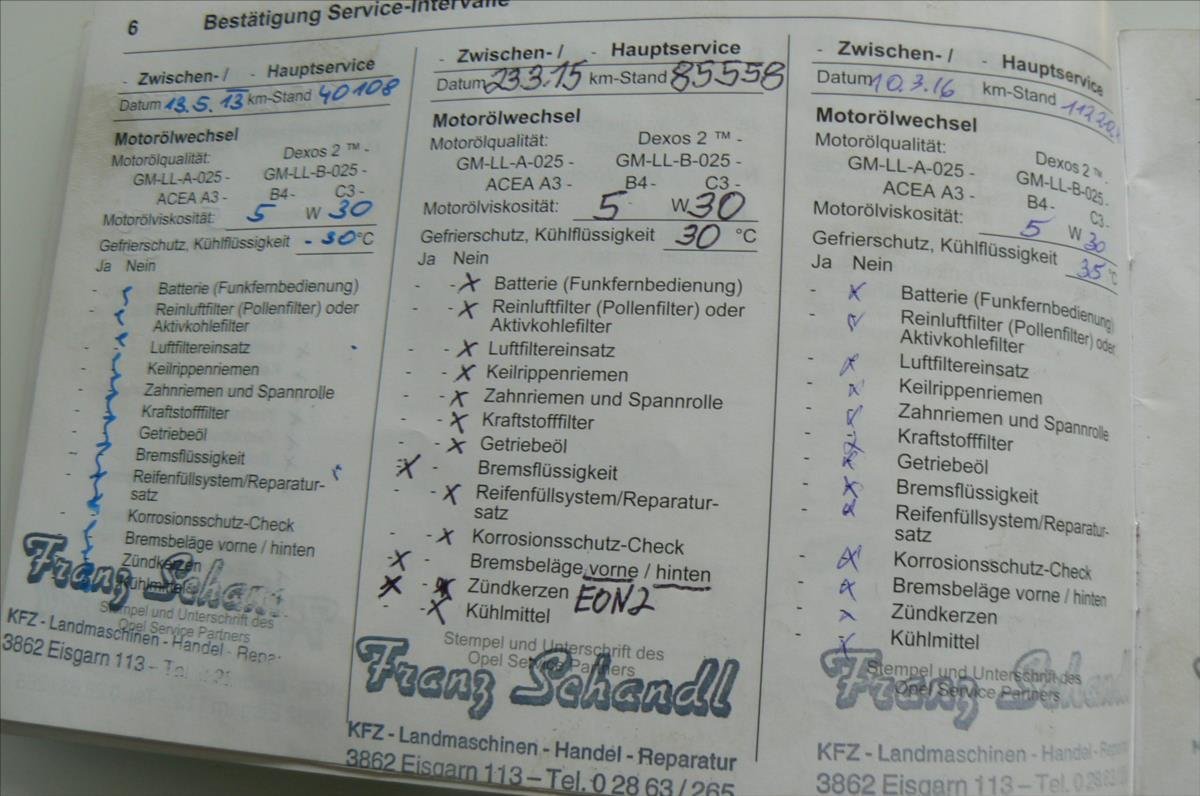 6 Bestätigung Service-Intervalle
- Zwischen- / - Hauptservice
Datum 13.5.13 km-Stand 40108
Motorölwechsel
Motorölqualität: Dexos 2 ™ -
GM-LL-A-025 - GM-LL-B-025 -
ACEA A3 - B4 - C3 -
Motorölviskosität: 5 W 30
Gefrierschutz, Kühlflüssigkeit - 30 °C
Ja Nein
Batterie (Funkfernbedienung)
Reinluftfilter (Pollenfilter) oder
Aktivkohlefilter
Luftfiltereinsatz
Keilrippenriemen
Zahnriemen und Spannrolle
Kraftstofffilter
Getriebeöl
Bremsflüssigkeit
Reifenfüllsystem/Reparatur-
satz
Korrosionsschutz-Check
Bremsbeläge vorne / hinten
Zündkerzen
Kühlmittel
Stempel und Unterschrift des
Opel Service Partners
Franz Schandl
KFZ - Landmaschinen - Handel - Repa
3862 Eisgarn 113 – Tel.
- Zwischen- / - Hauptservice
Datum 23.3.15 km-Stand 85558
Motorölwechsel
Motorölqualität: Dexos 2 ™ -
GM-LL-A-025 - GM-LL-B-025 -
ACEA A3 - B4 - C3 -
Motorölviskosität: 5 W 30
Gefrierschutz, Kühlflüssigkeit 30 °C
Ja Nein
- - X Batterie (Funkfernbedienung)
- - X Reinluftfilter (Pollenfilter) oder
Aktivkohlefilter
- - X Luftfiltereinsatz
- - X Keilrippenriemen
- - X Zahnriemen und Spannrolle
- - X Kraftstofffilter
- - X Getriebeöl
X - Bremsflüssigkeit
- - X Reifenfüllsystem/Reparatur-
satz
- - X Korrosionsschutz-Check
X - Bremsbeläge vorne / hinten
X - X Zündkerzen EON2
- - X Kühlmittel
Stempel und Unterschrift des
Opel Service Partners
Franz Schandl
KFZ - Landmaschinen - Handel - Reparatur
3862 Eisgarn 113 – Tel. 0 28 63 / 265
- Zwischen- / - Hauptservice
Datum 10.3.16 km-Stand
Motorölwechsel
Motorölqualität: Dexos 2 ™ -
GM-LL-A-025 - GM-LL-B-025 -
ACEA A3 - B4 - C3 -
Motorölviskosität: 5 W 30
Gefrierschutz, Kühlflüssigkeit 35 °C
Ja Nein
- X Batterie (Funkfernbedienung)
- X Reinluftfilter (Pollenfilter) oder
Aktivkohlefilter
- X Luftfiltereinsatz
- X Keilrippenriemen
- X Zahnriemen und Spannrolle
- X Kraftstofffilter
- X Getriebeöl
- X Bremsflüssigkeit
- X Reifenfüllsystem/Reparatur-
satz
- X Korrosionsschutz-Check
- X Bremsbeläge vorne / hinten
- X Zündkerzen
- X Kühlmittel
Stempel und Unterschrift des
Opel Service Partners
Franz Schandl
KFZ - Landmaschinen - Handel -
3862 Eisgarn 113 – Tel. 0 28 63 /